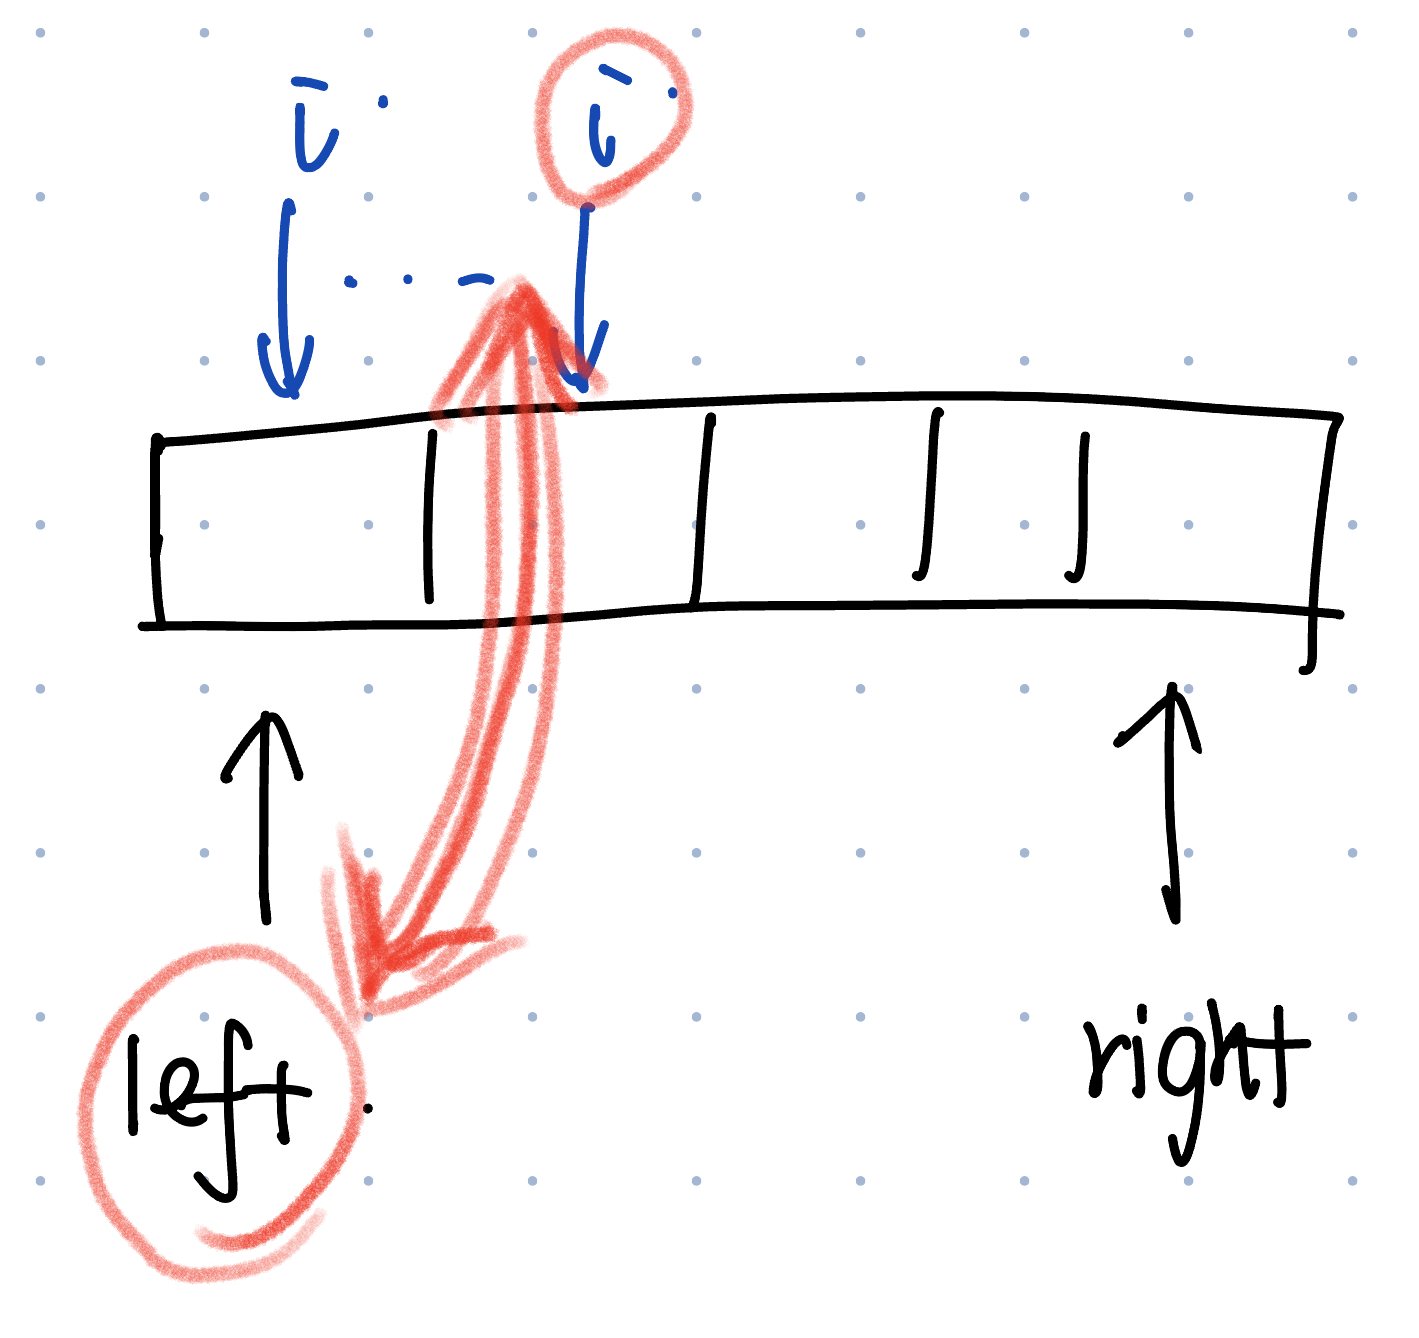 i i
left right